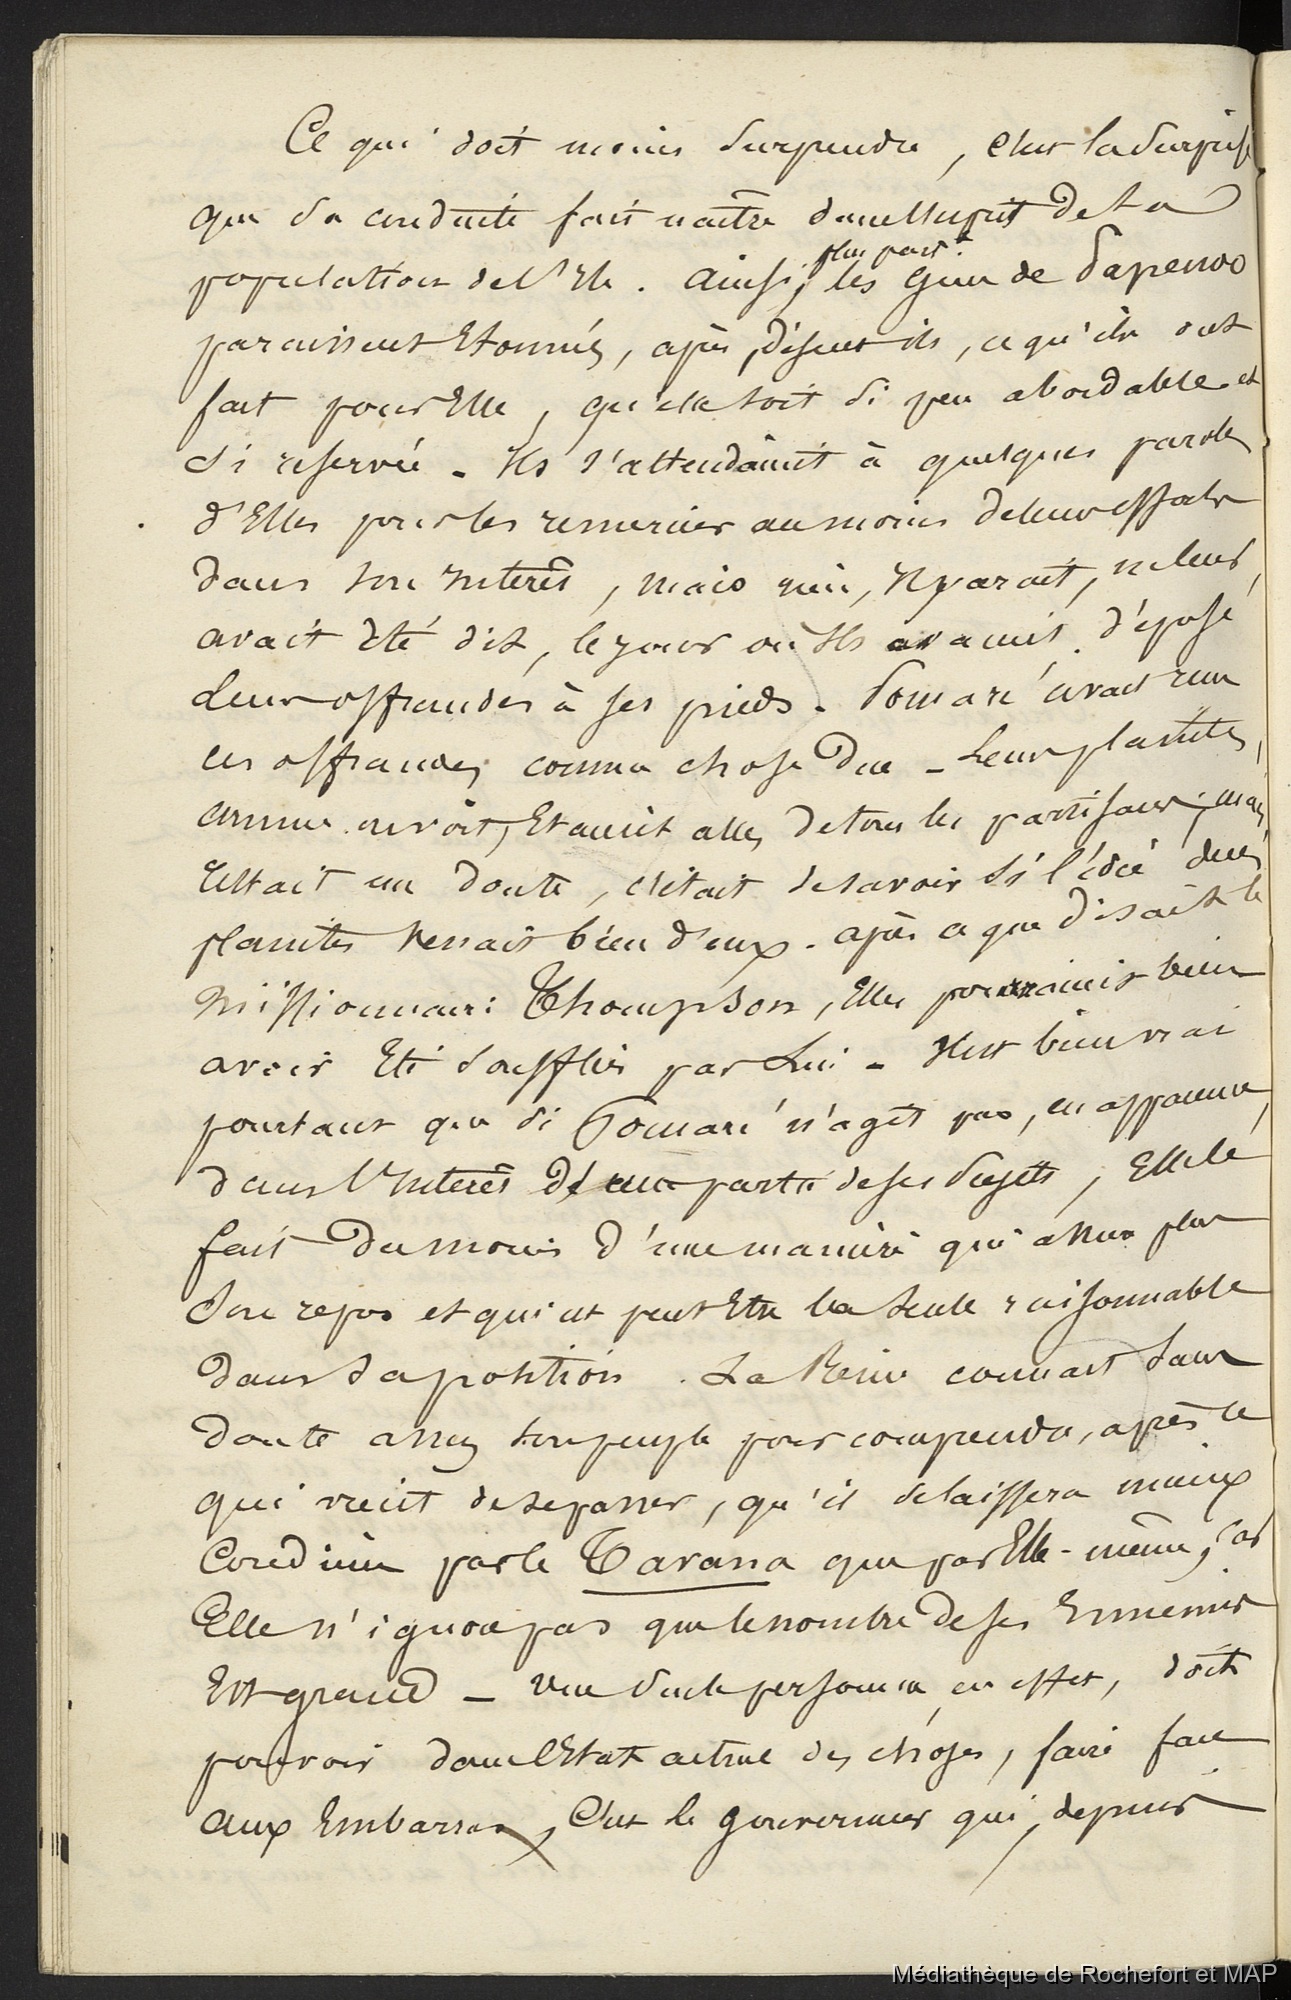 Ce qui doit moins surprendre, c'est la surprise
que sa conduite fait naître dans l'esprit de la
population de l'Ile. Ainsi, les gens de Papenoo
plus part.
paraissent Etonnés, après, disent ils, ce qu'ils ont
fait pour Elle, qu'elle soit si peu abordable et
si reservée - Ils s'attendaient à quelques paroles
d'Elles pour les remercier au moins de leurs efforts
dans son interêt, mais rien, Il parait, ne leur
avait été dit, le jour où Ils avaient déposé
leurs offrandes à ses pieds. Pomaré avait reçu
ces offrandes comme chose due - Leurs plaintes,
comme on voit, Etaient celles de tous les partisans; mais
restait un doute, c'était de savoir si l'idée de ces
plaintes venait bien d'eux. après ce que disait le
Missionnaire Thompson, Elles pourraient bien
avoir Eté soufflées par Lui - Il est bien vrai
pourtant que si Pomaré n'agit pas, en apparence,
dans l'Interêt d'une partie de ses sujets, Elle le
fait du moins d'une manière qui assure plus
son repos et qui est peut Etre la seule raisonnable
dans sa position. La Reine connait sans
doute assez son peuple pour comprendre, après ce
qui vient de se passer, qu'il se laissera mieux
Conduire par le Tavana que par Elle-même, car
Elle n'ignore pas que le nombre de ses Ennemis
Est grand - Une seule personne, en effet, doit
pouvoir dans l'Etat actuel des choses, faire face
aux Embarras, C'est le gouverneur qui, depuis
Médiathèque de Rochefort et MAP